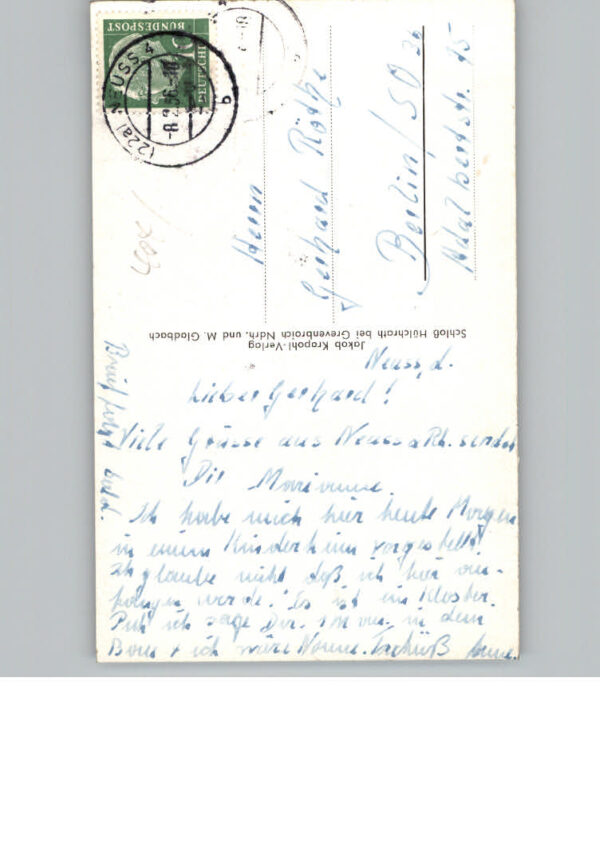 DEUTSCHE
BUNDESPOST
(22a) NEUSS 4
b
Herrn
Gerhard Röthe
Berlin / SO 36
Adalbertstr. 15
Jakob Krapohl-Verlag
Schloß Hülchrath bei Grevenbroich Ndrh. und M. Gladbach
Neuss, d.
Lieber Gerhard!
Viele Grüsse aus Neuss a Rh. sendet
Dir Marianne.
Ich habe mich hier heute Morgen
in einem Kinderheim vorgestellt.
Ich glaube nicht daß ich hier an-
fangen werde. Es ist ein Kloster.
Puh ich sage Dir. in dem
Bau + ich wäre Nonne. Tschüß
Brief folgt bald.